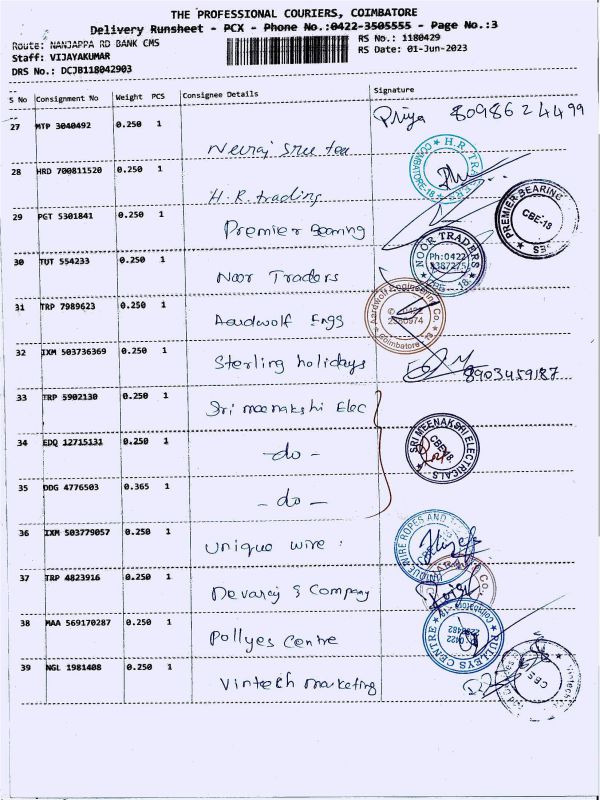 THE PROFESSIONAL COURIERS, COIMBATORE
Delivery Runsheet - PCX - Phone No.:0422-3505555 - Page No.:3
Route: NANJAPPA RD BANK CMS
RS No.: 1180429
Staff: VIJAYAKUMAR
RS Date: 01-Jun-2023
DRS No.: DCJB118042903
S No Consignment No Weight PCS Consignee Details Signature
27 MTP 3040492 0.250 1 Neeraj Sree tea Priya 8098624499
28 HRD 700811520 0.250 1 H.R. trading
29 PGT 5301841 0.250 1 Premier Bearing PREMIER BEARING CBE-18
30 TUT 554233 0.250 1 Noor Traders NOOR TRADERS Ph:0422
31 TRP 7989623 0.250 1 Aardwolf Engg Aardwolf Engineering Co. Coimbatore
32 IXM 503736369 0.250 1 Sterling holidays 8903459187
33 TRP 5902130 0.250 1 Sri meenakshi Elec
34 EDQ 12715131 0.250 1 -do- SRI MEENAKSHI ELECTRICALS CBE-18
35 DDG 4776503 0.365 1 -do-
36 IXM 503779057 0.250 1 Unique wire : UNIQUE WIRE ROPES AND
37 TRP 4823916 0.250 1 Devaraj & Company
38 MAA 569170287 0.250 1 Pollyes Centre PULLEYS CENTRE
39 NGL 1981408 0.250 1 Vintech marketing CBE